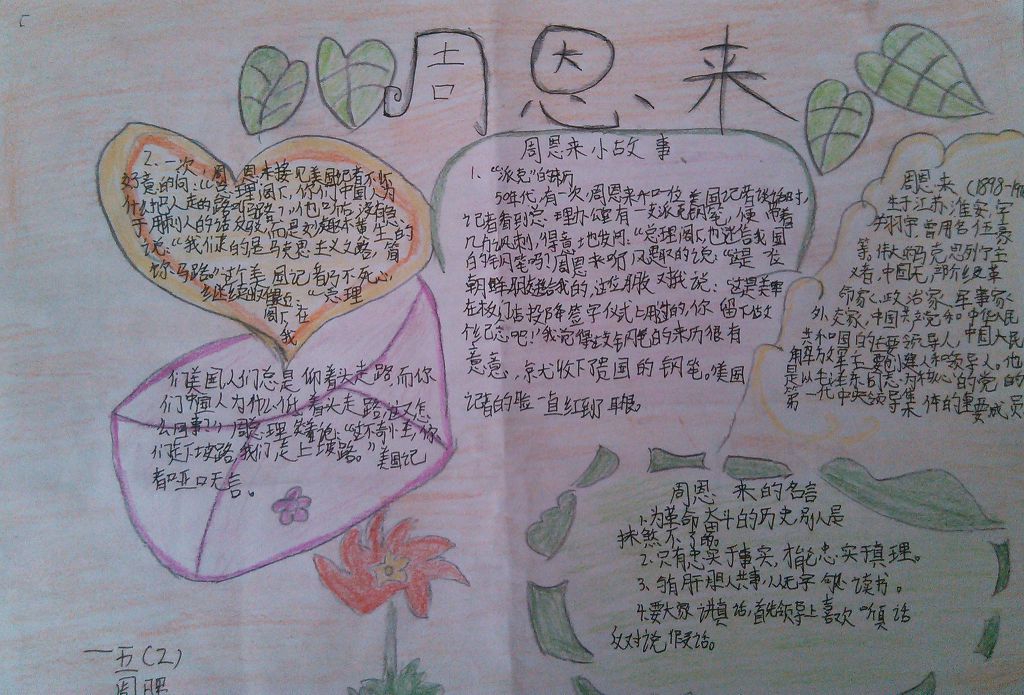 周恩来
周恩来小故事
1、“派克”的来历
50年代,有一次,周恩来和一位美国记者谈话时,
记者看到总理办公室有一支派克钢笔,便带着
几分讽刺,得意地发问:“总理阁下,也迷信我国
的钢笔吗?周恩来听风趣的说:“这是一位
朝鲜朋友送给我的,这位朋友对我说:“这是美军
在板门店投降签字仪式上用过的,你留下做
个纪念吧!”我觉得这支钢笔的来历很有
意意,京尤收下贵国的钢笔。”美国
记者的脸一直红到耳根。
2、一次,周恩来接见美国记者不怀
好意的问:“总理阁下,你们中国人为
什么把人走的路叫马路?”他听后没有急
于用刺人的话反驳,而是妙趣不番生的
说:“我们走的是马克思主义之路,简
称马路。”这个美国记者仍不死心,
继续的:“总理
阁下,在
我
们美国人们总是仰着头走路,而你
们中国人为什么低着头走路,这又怎
么回事?”周总理笑着说:“这不奇怪,你
们走下坡路,我们走上坡路。”美国记
者哑口无言。
周恩来(1898-
生于江苏淮安,字
翔宇,曾用名伍豪
等,伟大的马克思列宁主
义者,中国无产阶级革
命家、政治家、军事家、
外交家,中国共产党和中华人民
共和国的主要领导人,中国人民
解放军主要创建人和领导人。也
是以毛泽东同志为核心的党的
第一代中央领导集体的重要成员
周恩来的名言
1、为革命大斗的历史,别人是
抹煞不了的。
2、只有忠实于事实,才能忠实于真理。
3、与有肝胆人共事,从无字句处读书。
4、要大家讲真话,首先领导上喜欢听真话
反对说假话。
一五(2)
周